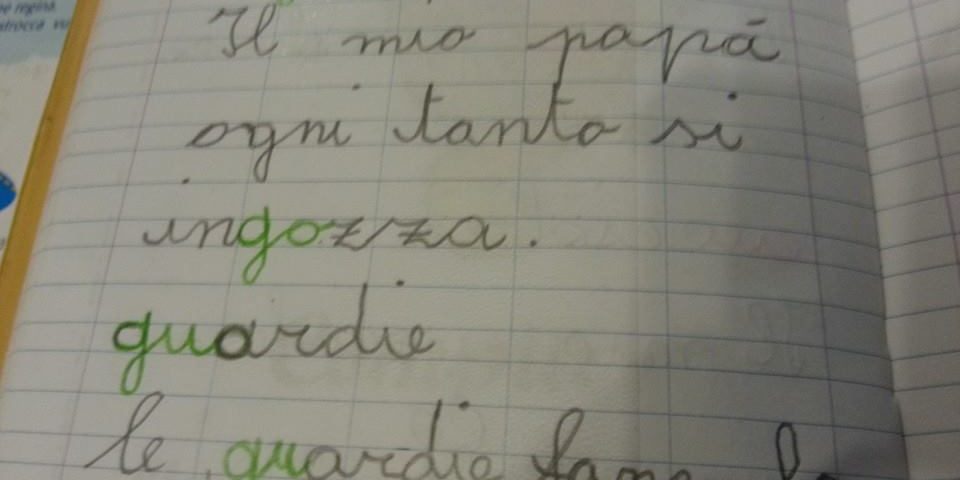 Il mio papà
ogni tanto si
ingozza.
guardie
le guardie